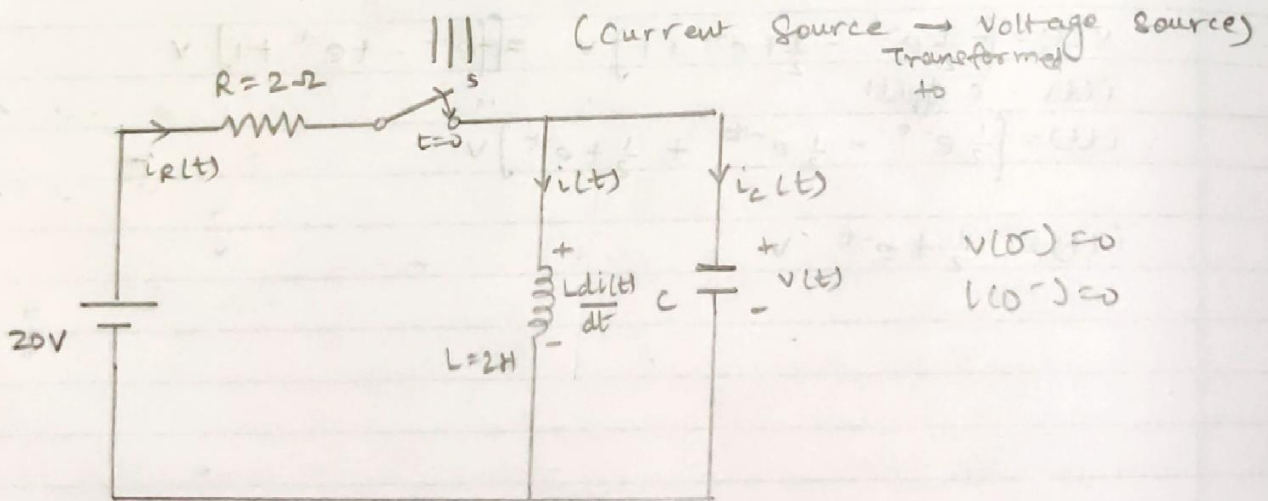 (Current Source → Voltage Source)
Transformed
to
R = 2Ω
S
t=0
iR(t)
i(t)
ic(t)
+
L di(t)
dt
-
C
+
v(t)
-
v(0-) = 0
i(0-) = 0
20V
L = 2H